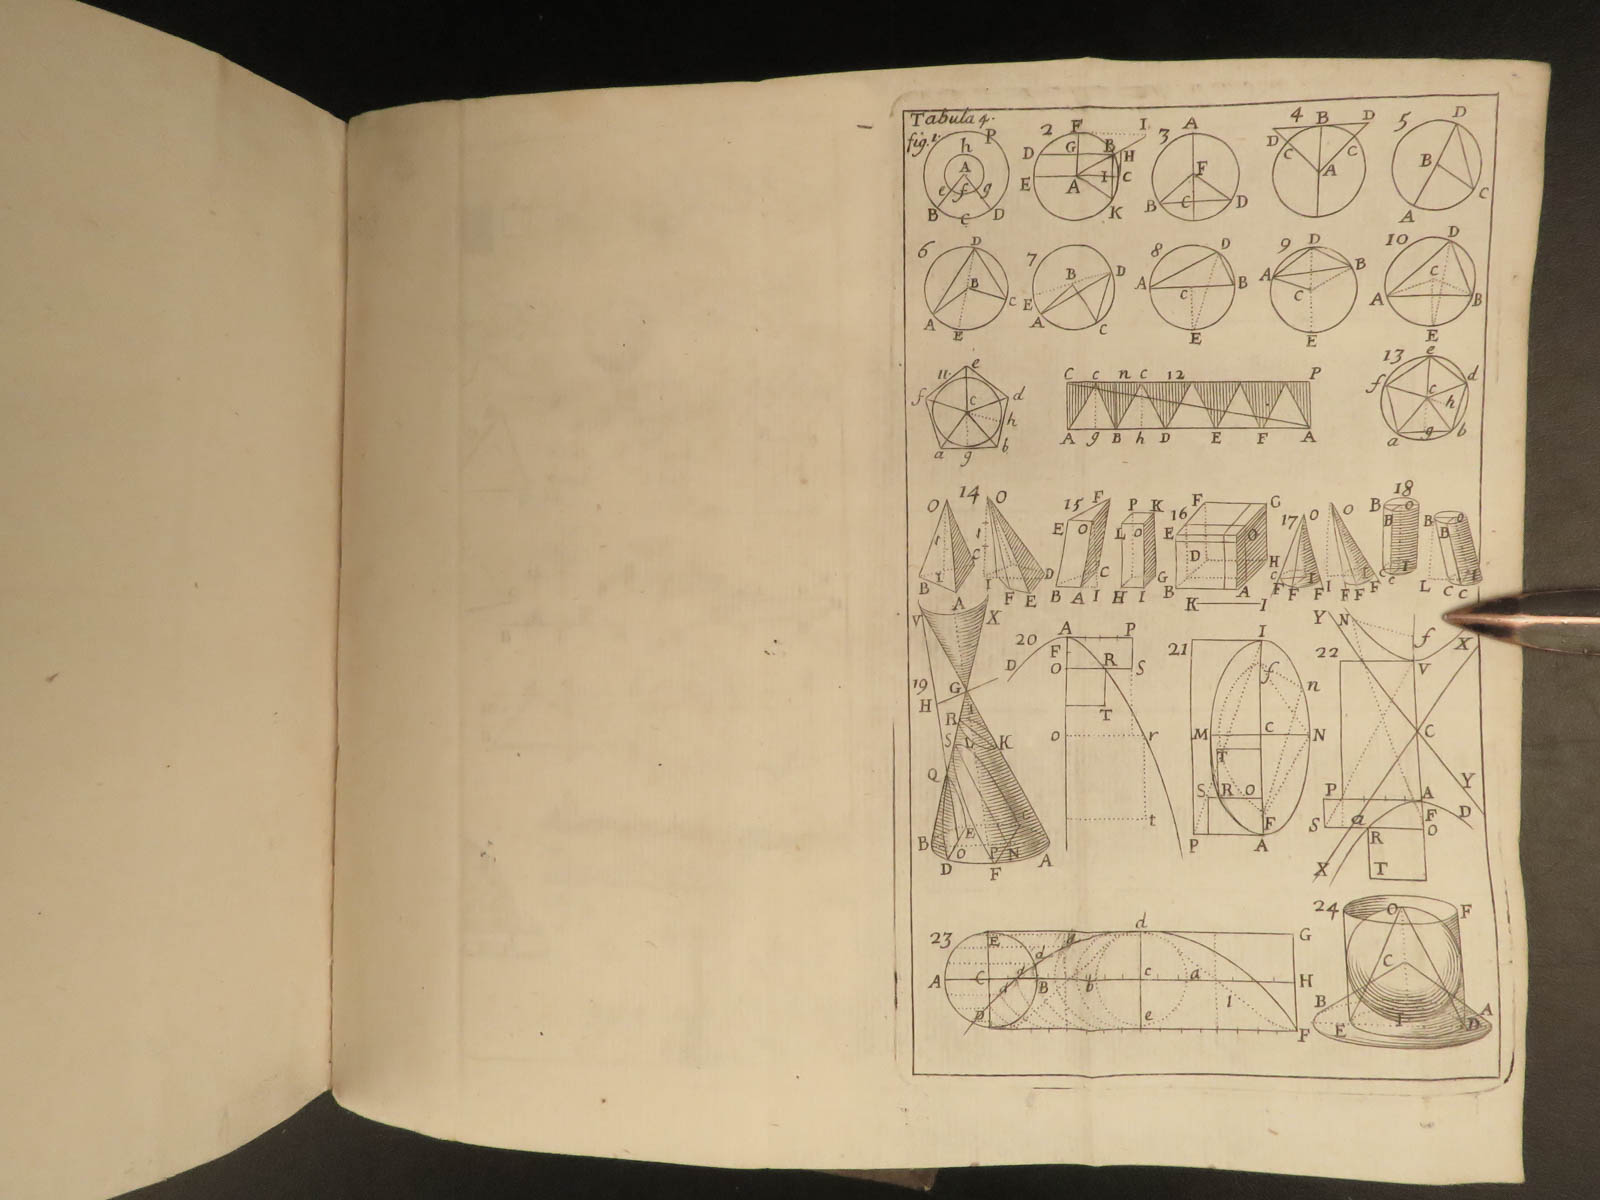 Tabula 4.
fig. 1. P h A e f g B C D
2 F I D G B H E A I C K
3 A F B C D
4 B D D C C A
5 D B C A
6 D B C A E
7 B D E A C
8 D A B C E
9 D A B C E
10 D C A B E
11 e f c d h a g b
C c n c 12 P
A g B h D E F A
13 e f d c h a g b
14 O O
B I A I F E D
15 F E O C B A I
P K L O G H I
16 F G E O D H B A K I
17 O O
F F F I F F F
18 B O B I
B O B L C C I
V A X
19 G H R S L K Q B E D O F P N A
20 A P D F O R S T o r t
21 I f n M C N T S R O F P A
22 Y N f X V C Y P A D S a F O R X T
23 E d G A C B b c a H D e l F
24 O F C B A E I D